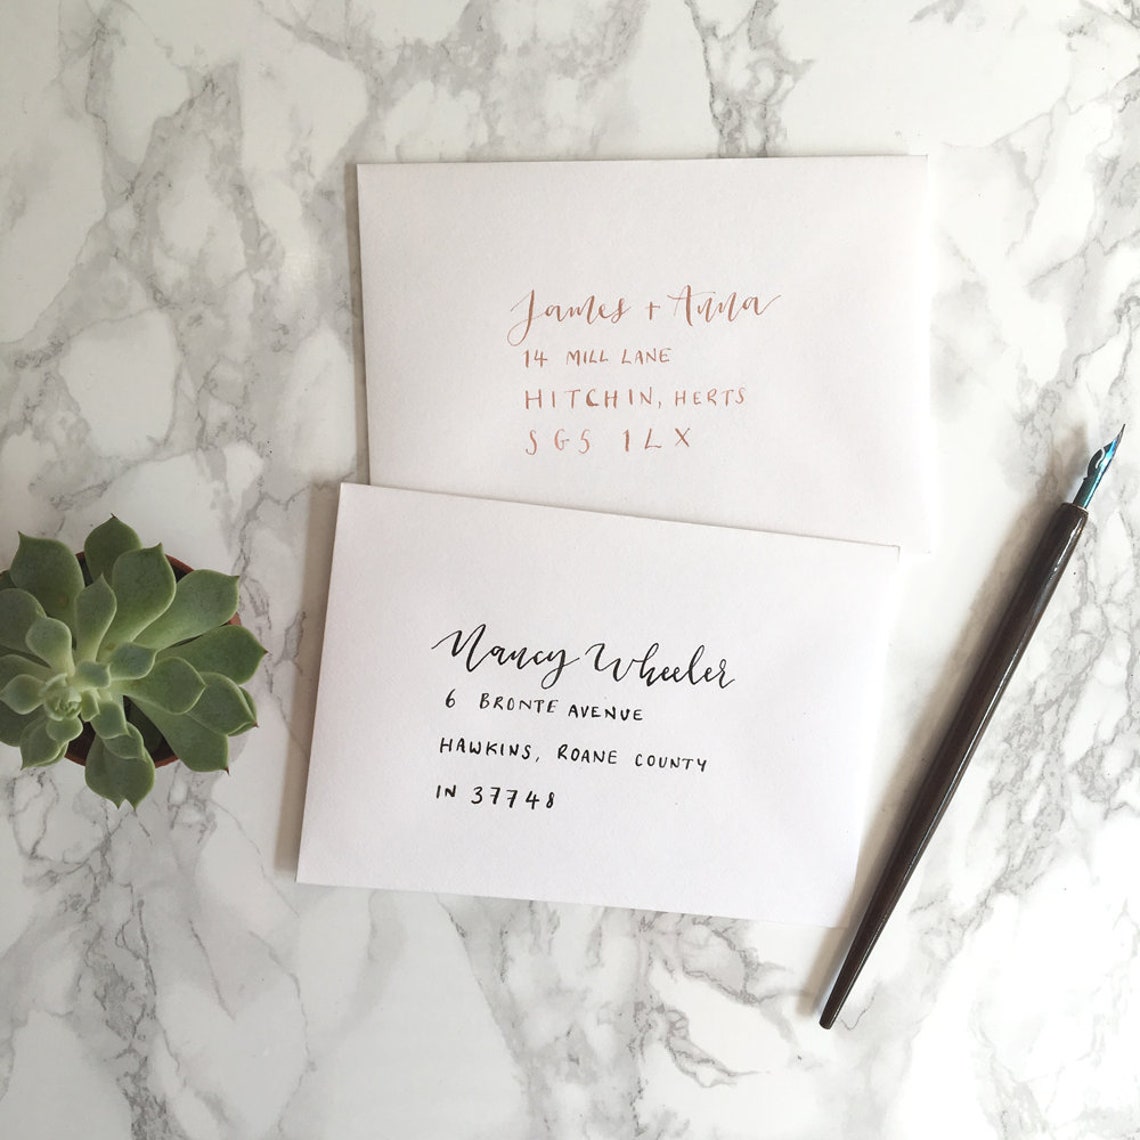 James + Anna
14 MILL LANE
HITCHIN, HERTS
SG5 1LX
Nancy Wheeler
6 BRONTE AVENUE
HAWKINS, ROANE COUNTY
IN 37748